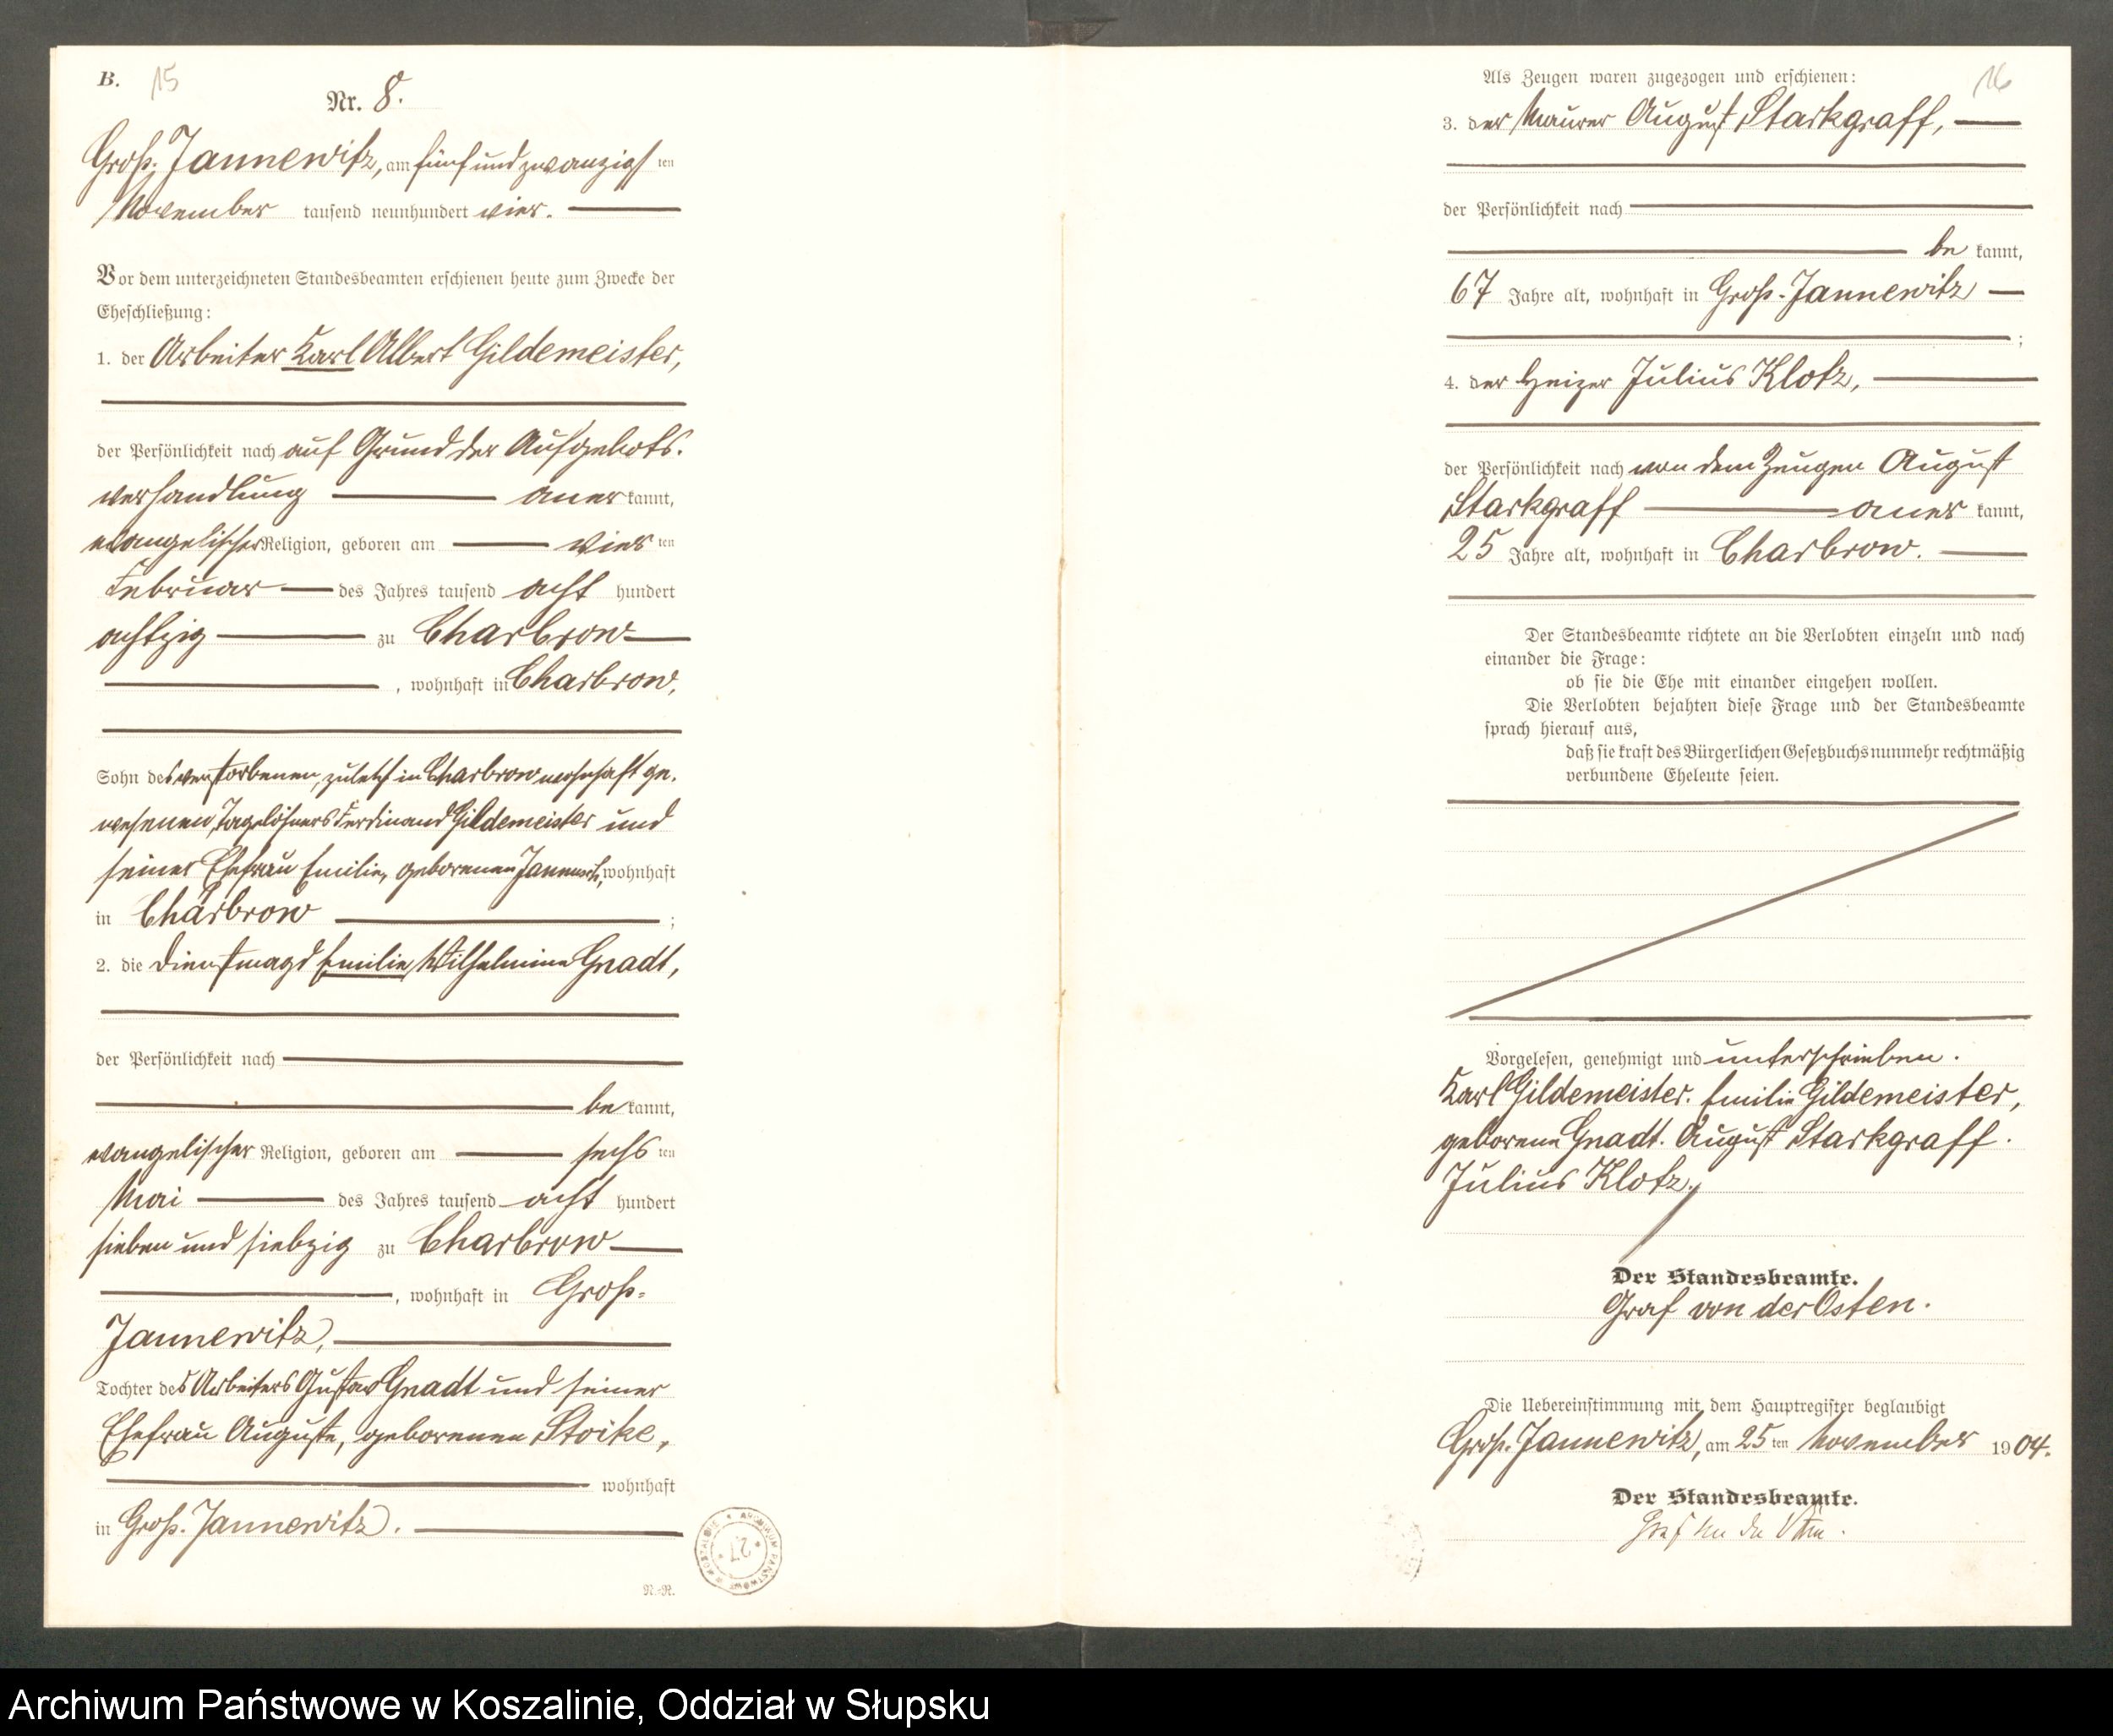 B. 15
Nr. 8.
Groß-Jannewitz, am fünfundzwanzigsten
November tausend neunhundert vier.
Vor dem unterzeichneten Standesbeamten erschienen heute zum Zwecke der
Eheschließung:
1. der Arbeiter Karl Albert Gildemeister,
der Persönlichkeit nach auf Grund der Aufgebots-
verhandlung anerkannt,
evangelischer Religion, geboren am vierten
Februar des Jahres tausend acht hundert
achtzig zu Charbrow
, wohnhaft in Charbrow,
Sohn des verstorbenen, zuletzt in Charbrow wohnhaft ge-
wesenen Tagelöhners Ferdinand Gildemeister und
seiner Ehefrau Emilie, geborenen wohnhaft
in Charbrow ;
2. die Dienstmagd Emilie Wilhelmine Gnadt,
der Persönlichkeit nach
bekannt,
evangelischer Religion, geboren am sechsten
Mai des Jahres tausend acht hundert
sieben und siebzig zu Charbrow
, wohnhaft in Groß-
Jannewitz,
Tochter des Arbeiters Gustav Gnadt und seiner
Ehefrau Auguste, geborenen Stoike,
wohnhaft
in Groß-Jannewitz.
R.-R.
ARCHIWUM PAŃSTWOWE W KOSZALINIE * 27 *
16
Als Zeugen waren zugezogen und erschienen:
3. der Maurer August Starkgraff,
der Persönlichkeit nach
bekannt,
67 Jahre alt, wohnhaft in Groß-Jannewitz
;
4. der Heizer Julius Klotz,
der Persönlichkeit nach von dem Zeugen August
Starkgraff anerkannt,
25 Jahre alt, wohnhaft in Charbrow.
Der Standesbeamte richtete an die Verlobten einzeln und nach
einander die Frage:
ob sie die Ehe mit einander eingehen wollen.
Die Verlobten bejahten diese Frage und der Standesbeamte
sprach hierauf aus,
daß sie kraft des Bürgerlichen Gesetzbuchs nunmehr rechtmäßig
verbundene Eheleute seien.
Vorgelesen, genehmigt und unterschrieben.
Karl Gildemeister. Emilie Gildemeister,
geborene Gnadt. August Starkgraff.
Julius Klotz.
Der Standesbeamte.
Graf von der Osten.
Die Uebereinstimmung mit dem Hauptregister beglaubigt
Groß-Jannewitz, am 25ten November 1904.
Der Standesbeamte.
Graf von der Osten.
Archiwum Państwowe w Koszalinie, Oddział w Słupsku